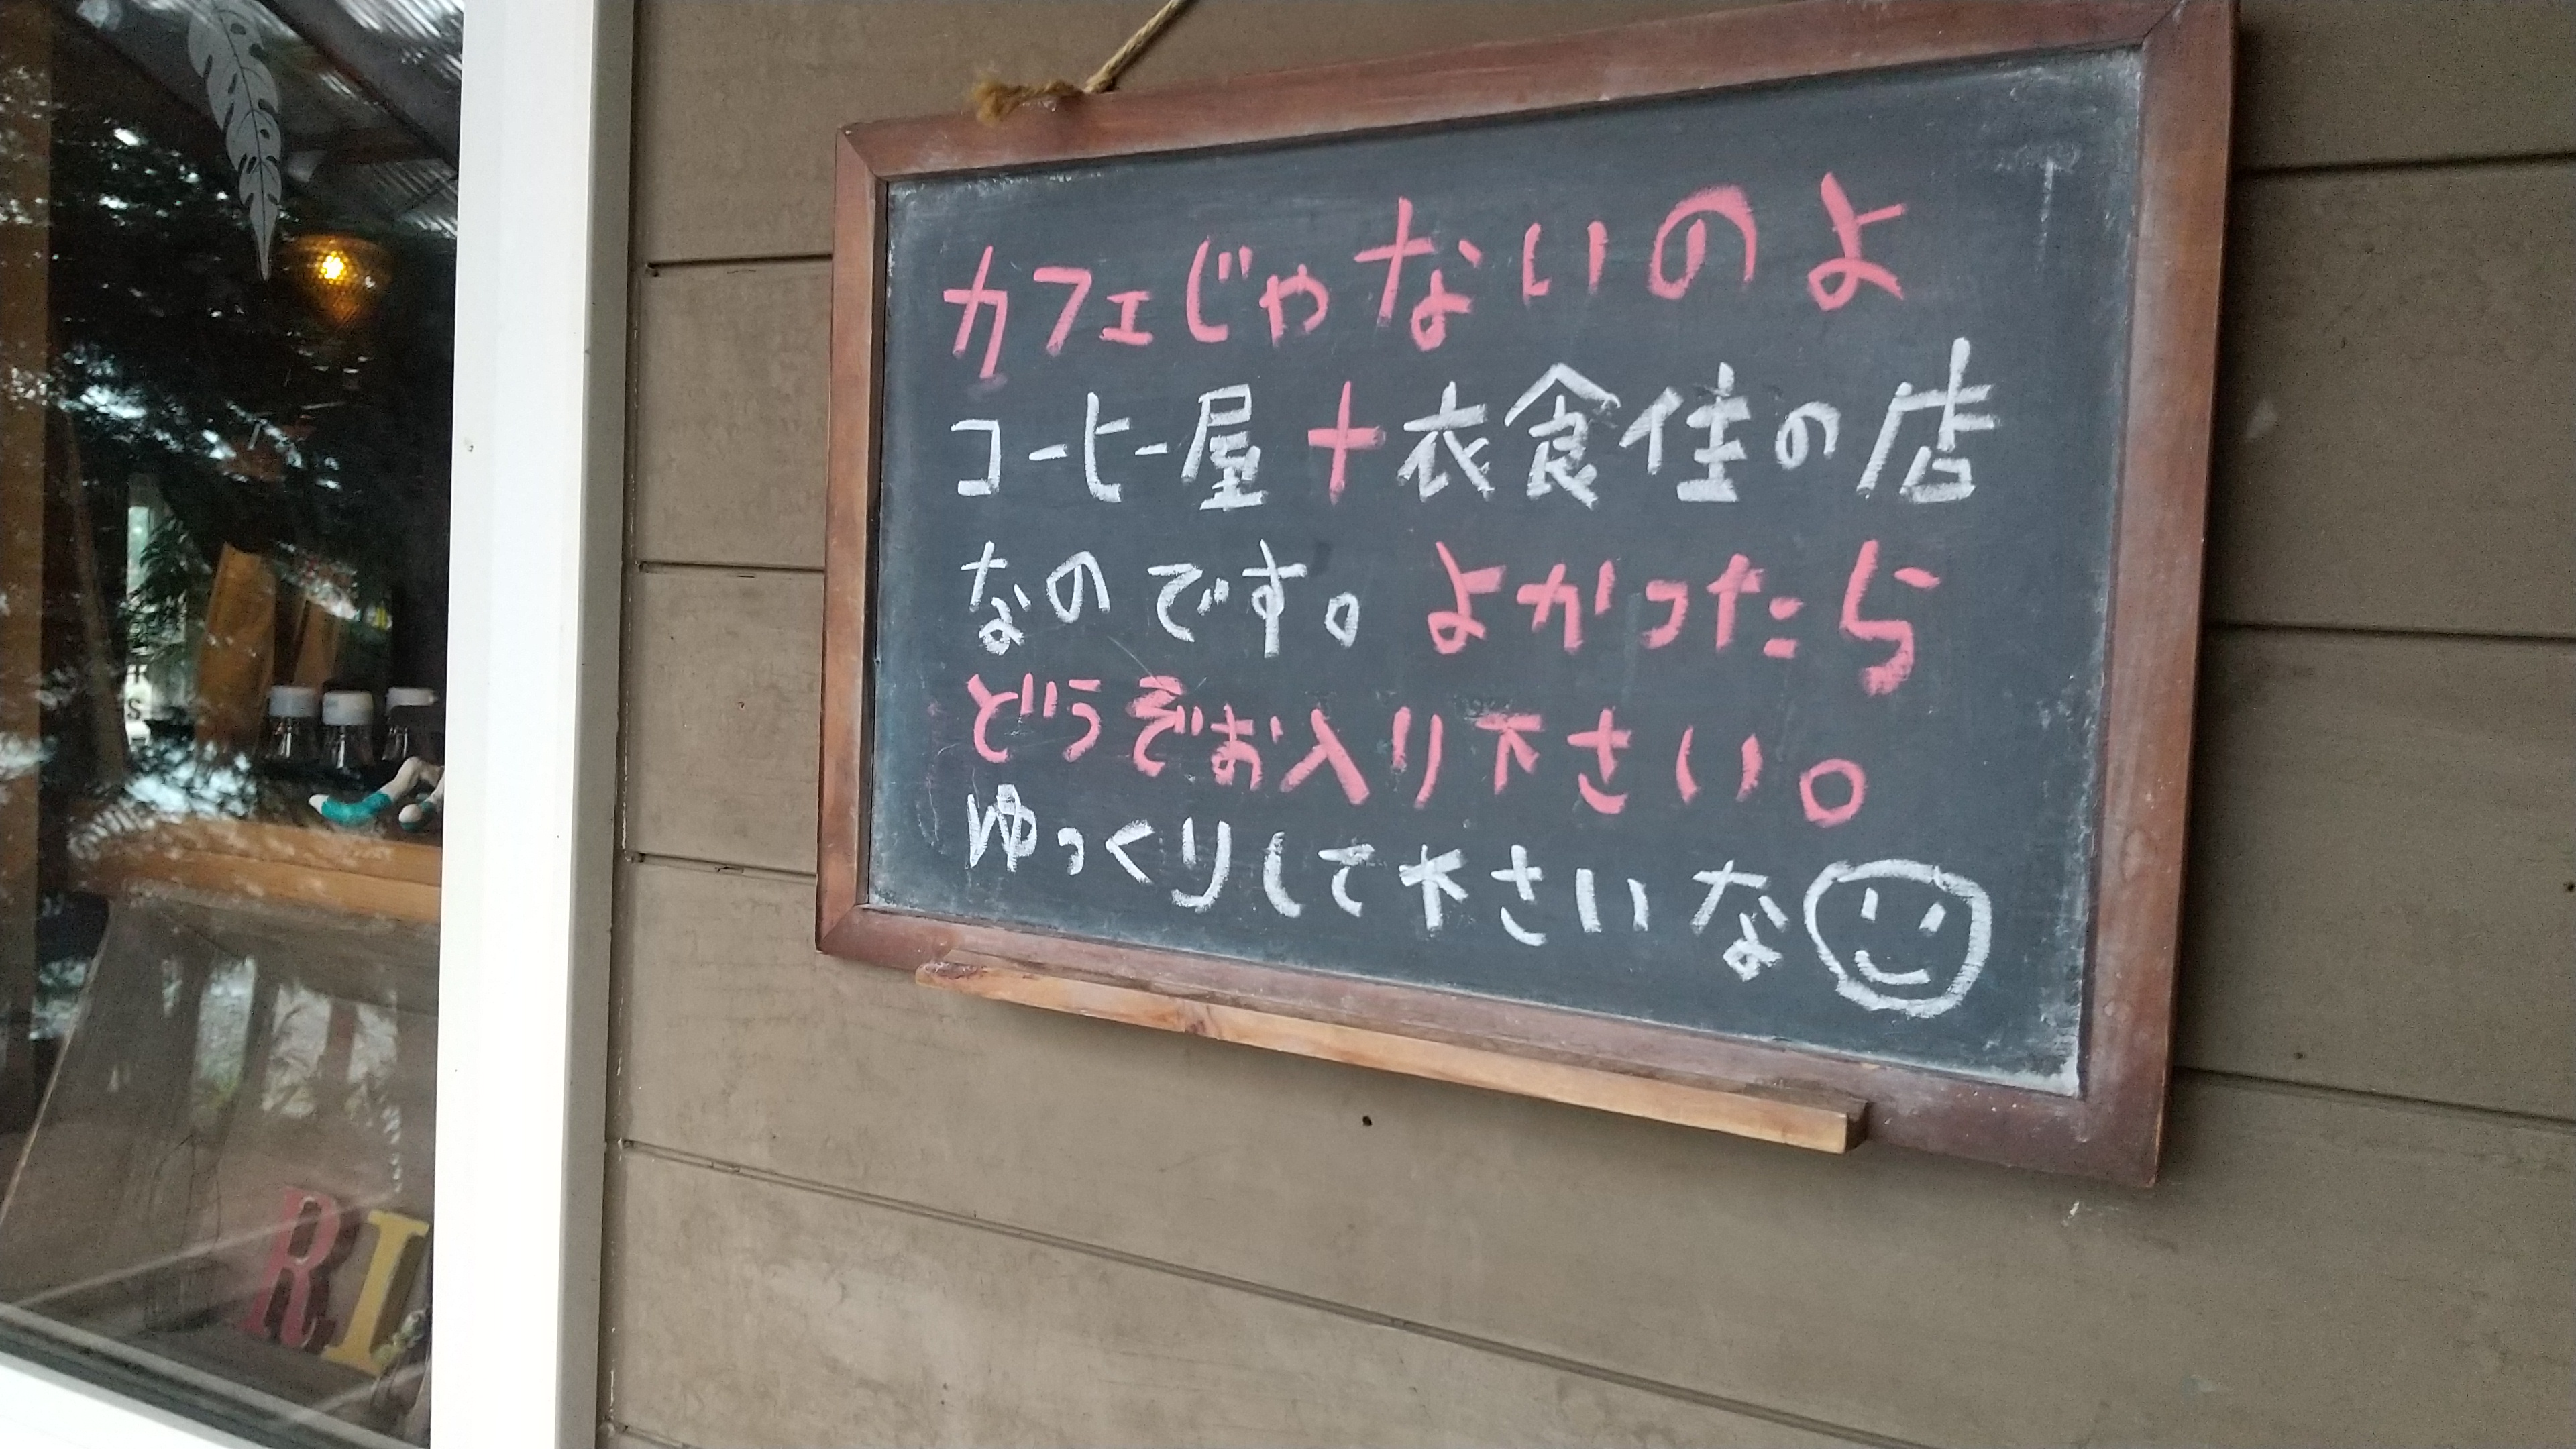 カフェじゃないのよ
コーヒー屋+衣食住の店
なのです。よかったら
どうぞお入り下さい。
ゆっくりして下さいな
RI